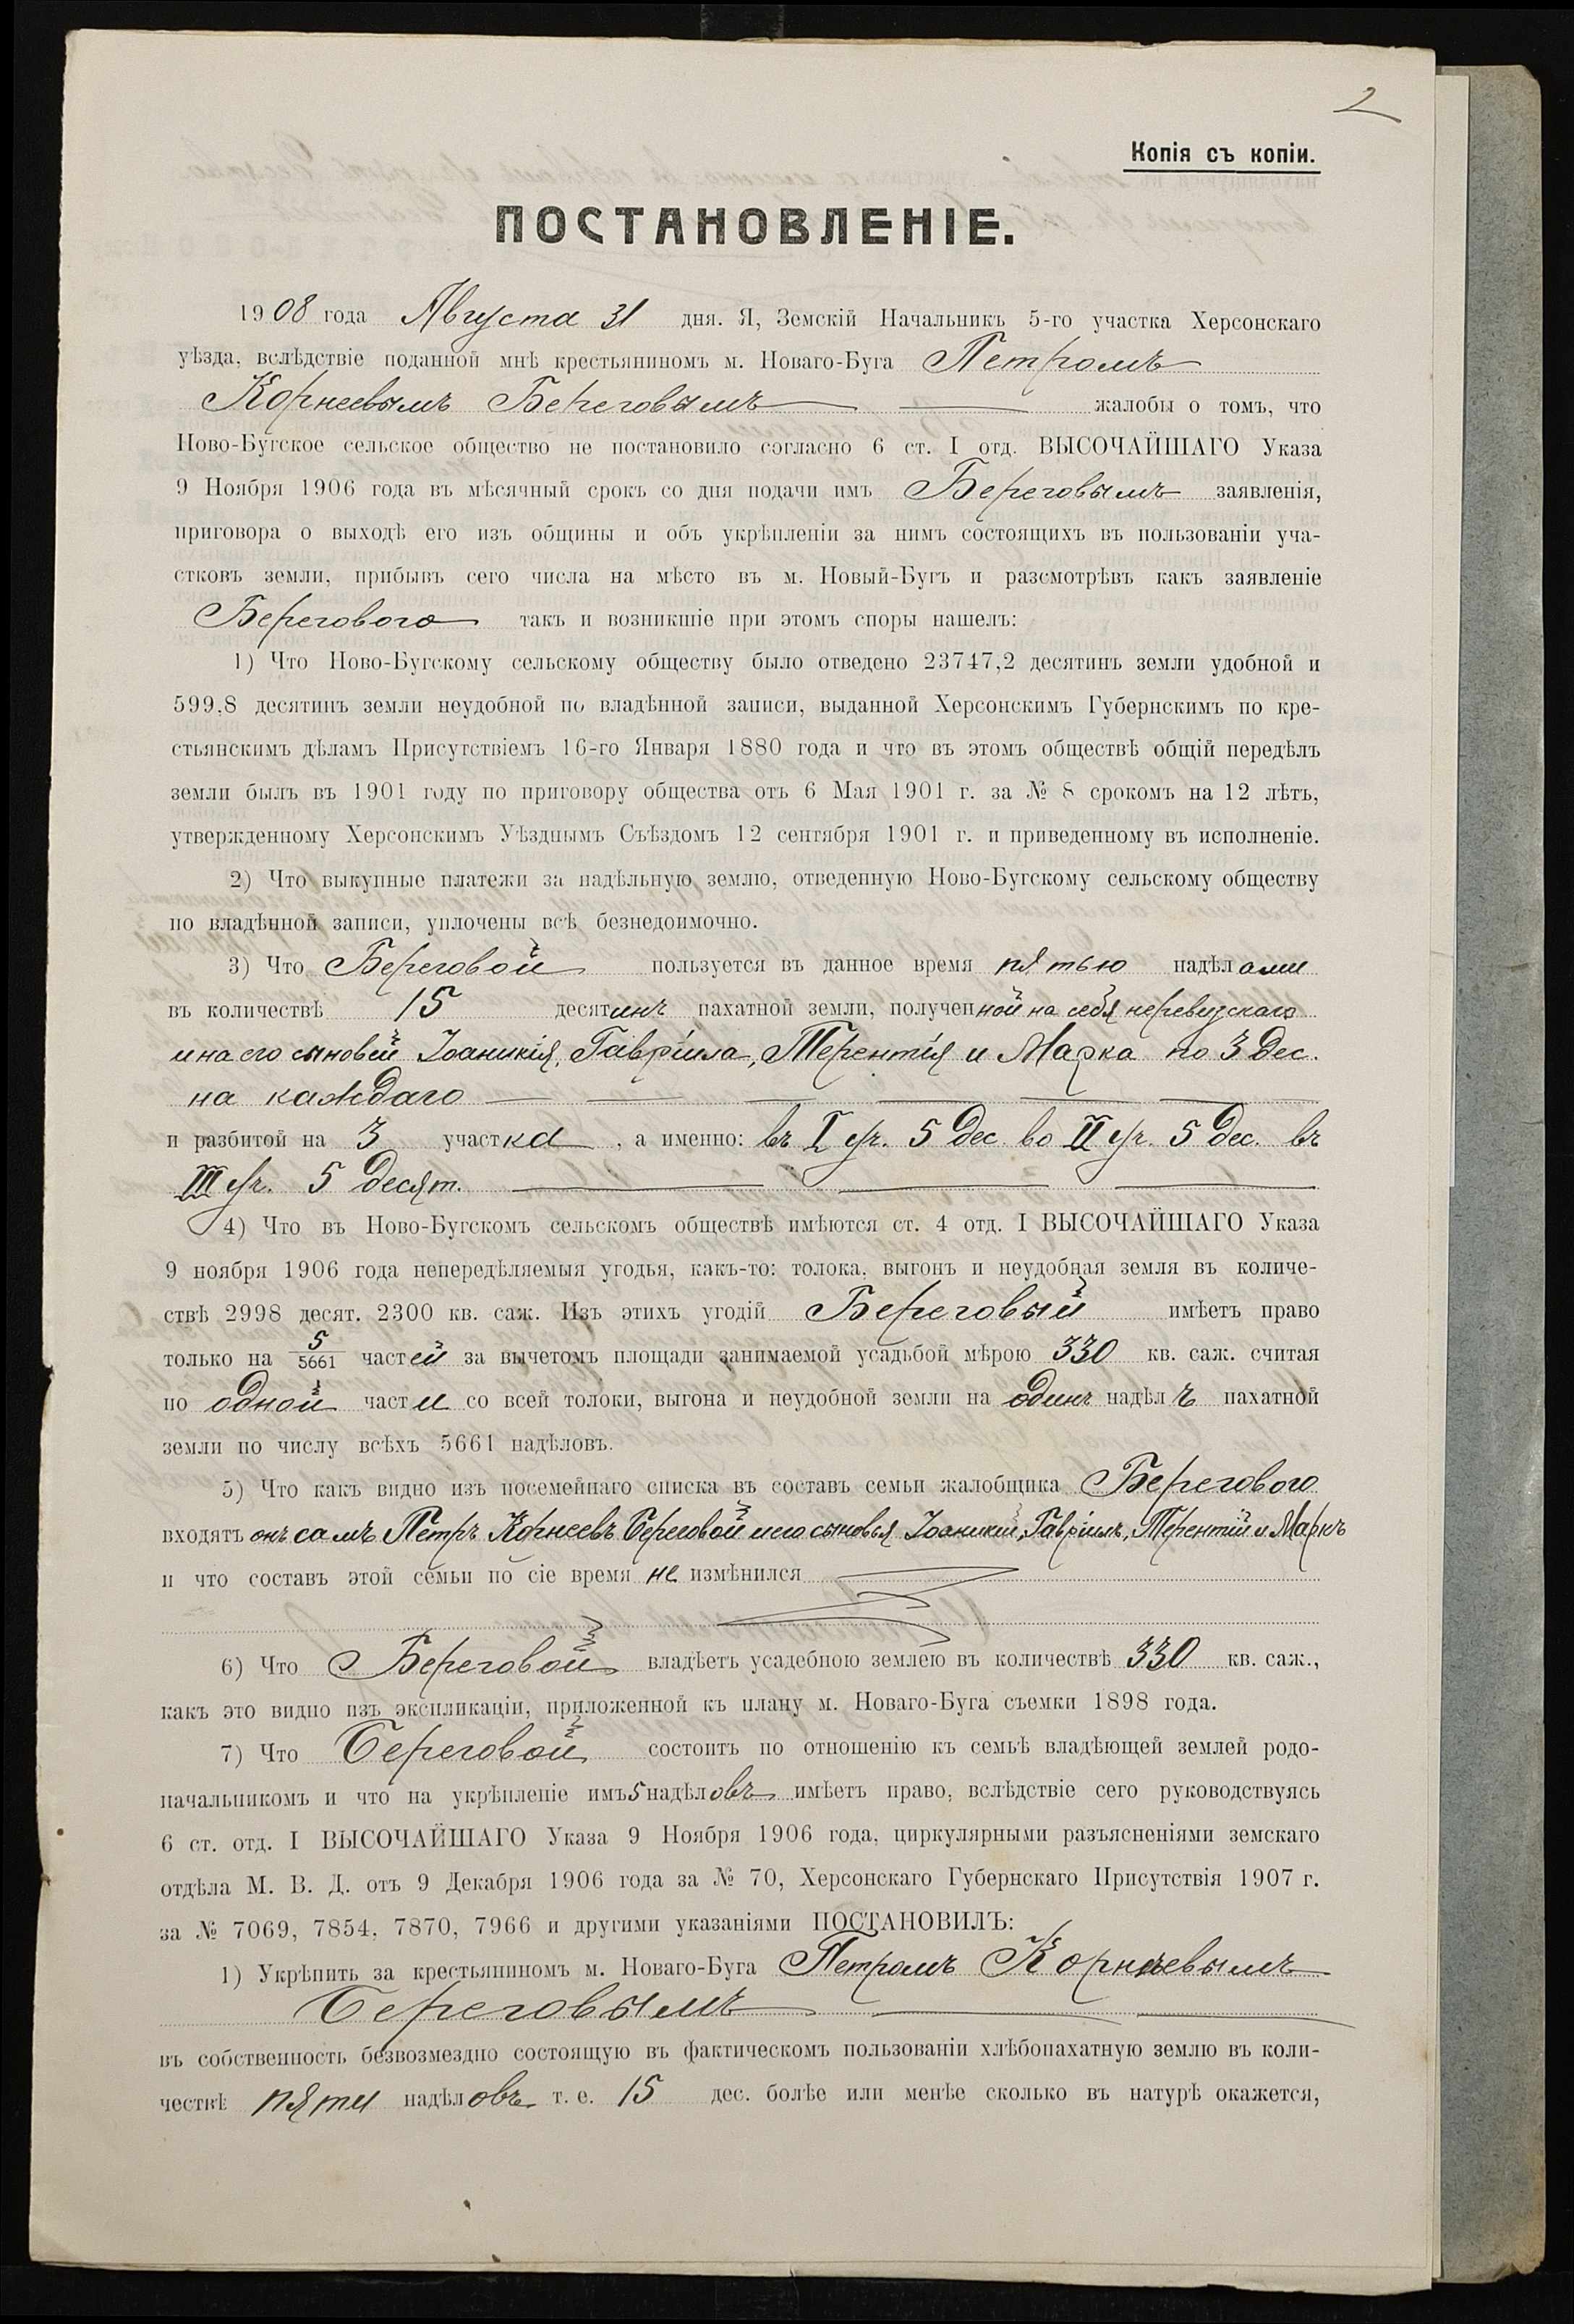 2
Копія съ копіи.
ПОСТАНОВЛЕНІЕ.
1908 года Августа 31 дня. Я, Земскій Начальникъ 5-го участка Херсонскаго
уѣзда, вслѣдствіе поданной мнѣ крестьяниномъ м. Новаго-Буга Петромъ
Корнеевымъ Береговымъ жалобы о томъ, что
Ново-Бугское сельское общество не постановило согласно 6 ст. I отд. ВЫСОЧАЙШАГО Указа
9 Ноября 1906 года въ мѣсячный срокъ со дня подачи имъ Береговымъ заявленія,
приговора о выходѣ его изъ общины и объ укрѣпленіи за нимъ состоящихъ въ пользованіи уча-
стковъ земли, прибывъ сего числа на мѣсто въ м. Новый-Бугъ и разсмотрѣвъ какъ заявленіе
Берегового такъ и возникшіе при этомъ споры нашелъ:
1) Что Ново-Бугскому сельскому обществу было отведено 23747,2 десятинъ земли удобной и
599,8 десятинъ земли неудобной по владѣнной записи, выданной Херсонскимъ Губернскимъ по кре-
стьянскимъ дѣламъ Присутствіемъ 16-го Января 1880 года и что въ этомъ обществѣ общій передѣлъ
земли былъ въ 1901 году по приговору общества отъ 6 Мая 1901 г. за № 8 срокомъ на 12 лѣтъ,
утвержденному Херсонскимъ Уѣзднымъ Съѣздомъ 12 сентября 1901 г. и приведенному въ исполненіе.
2) Что выкупные платежи за надѣльную землю, отведенную Ново-Бугскому сельскому обществу
по владѣнной записи, уплочены всѣ безнедоимочно.
3) Что Береговой пользуется въ данное время пятью надѣлами
въ количествѣ 15 десятинъ пахатной земли, полученной на себя неревизскаго
и на его сыновей Іоаникія, Гавріила, Терентія и Марка по 3 дес.
на каждаго
и разбитой на 3 участка, а именно: въ I уч. 5 дес. во II уч. 5 дес. въ
III уч. 5 десят.
4) Что въ Ново-Бугскомъ сельскомъ обществѣ имѣются ст. 4 отд. I ВЫСОЧАЙШАГО Указа
9 ноября 1906 года непередѣляемыя угодья, какъ-то: толока, выгонъ и неудобная земля въ количе-
ствѣ 2998 десят. 2300 кв. саж. Изъ этихъ угодій Береговый имѣетъ право
только на 5/5661 частей за вычетомъ площади занимаемой усадьбой мѣрою 330 кв. саж. считая
по одной части со всей толоки, выгона и неудобной земли на одинъ надѣлъ пахатной
земли по числу всѣхъ 5661 надѣловъ.
5) Что какъ видно изъ посемейнаго списка въ составъ семьи жалобщика Берегового
входятъ онъ самъ Петръ Корнеевъ Береговой и его сыновья Іоаникій, Гавріилъ, Терентій и Маркъ
и что составъ этой семьи по сіе время не измѣнился
6) Что Береговой владѣетъ усадебною землею въ количествѣ 330 кв. саж.,
какъ это видно изъ экспликаціи, приложенной къ плану м. Новаго-Буга съемки 1898 года.
7) Что Береговой состоитъ по отношенію къ семьѣ владѣющей землей родо-
начальникомъ и что на укрѣпленіе имъ 5 надѣловъ имѣетъ право, вслѣдствіе сего руководствуясь
6 ст. отд. I ВЫСОЧАЙШАГО Указа 9 Ноября 1906 года, циркулярными разъясненіями земскаго
отдѣла М. В. Д. отъ 9 Декабря 1906 года за № 70, Херсонскаго Губернскаго Присутствія 1907 г.
за № 7069, 7854, 7870, 7966 и другими указаніями ПОСТАНОВИЛЪ:
1) Укрѣпить за крестьяниномъ м. Новаго-Буга Петромъ Корнѣевымъ
Береговымъ
въ собственность безвозмездно состоящую въ фактическомъ пользованіи хлѣбопахатную землю въ коли-
чествѣ пяти надѣловъ т. е. 15 дес. болѣе или менѣе сколько въ натурѣ окажется,